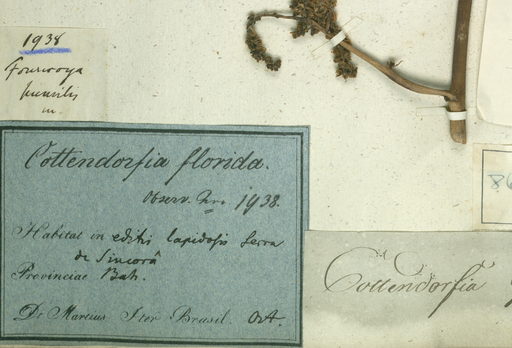 1938
Fourcroya
m.
Cottendorfia florida.
Observ. Nro 1938.
Habitat in editis lapidosis Serra
de Sincorá
Provinciae Bah.
Dr Martius Iter Brasil. Oct.
86
Cottendorfia